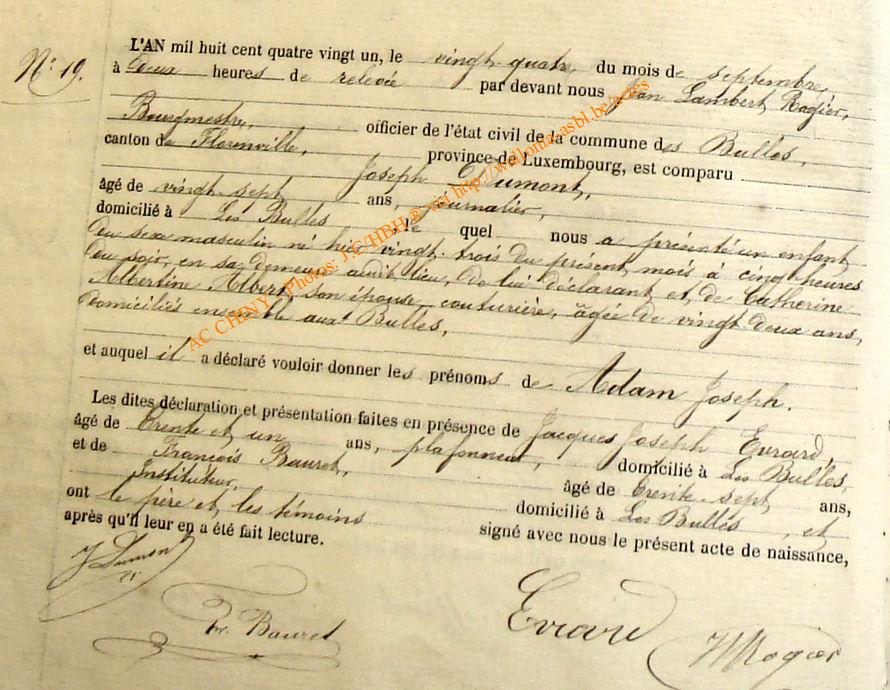 N° 19.
L'AN mil huit cent quatre vingt un, le vingt-quatre, du mois de septembre,
à deux heures de relevée par devant nous Jean Lambert Rogier,
Bourgmestre, officier de l'état civil de la commune des Bulles,
canton de Florenville, province de Luxembourg, est comparu
Joseph Dumont,
âgé de vingt-sept ans, journalier,
domicilié à Les Bulles, le quel nous a présenté un enfant
du sexe masculin né hier vingt-trois du présent mois à cinq heures
du soir, en sa demeure audit lieu, de lui déclarant et de Catherine
Albertine Albert, son épouse, couturière, âgée de vingt-deux ans,
domiciliés ensemble aux Bulles,
et auquel il a déclaré vouloir donner les prénoms de Adam Joseph.
Les dites déclaration et présentation faites en présence de Jacques Joseph Evrard,
âgé de trente et un ans, plafonneur, domicilié à Les Bulles,
et de François Bauret, âgé de trente-sept ans,
Instituteur, domicilié à Les Bulles, et
ont le père et les témoins signé avec nous le présent acte de naissance,
après qu'il leur en a été fait lecture.
J Dumont
Fr. Bauret
Evrard
Rogier
AC CHINY - Photos: J.C/HBH @ via http://wallonia-asbl.be/actes